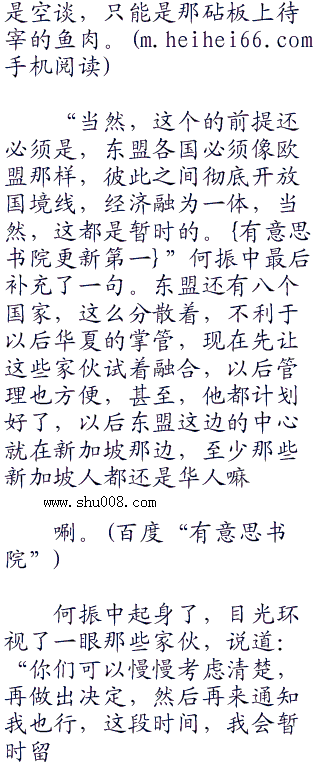 是空谈，只能是那砧板上待
宰的鱼肉。(m.heihei66.com
手机阅读)
“当然，这个的前提还
必须是，东盟各国必须像欧
盟那样，彼此之间彻底开放
国境线，经济融为一体，当
然，这都是暂时的。{有意思
书院更新第一}”何振中最后
补充了一句。东盟还有八个
国家，这么分散着，不利于
以后华夏的掌管，现在先让
这些家伙试着融合，以后管
理也方便，甚至，他都计划
好了，以后东盟这边的中心
就在新加坡那边，至少那些
新加坡人都还是华人嘛
www.shu008.com
唰。(百度“有意思书
院”)
何振中起身了，目光环
视了一眼那些家伙，说道：
“你们可以慢慢考虑清楚，
再做出决定，然后再来通知
我也行，这段时间，我会暂
时留